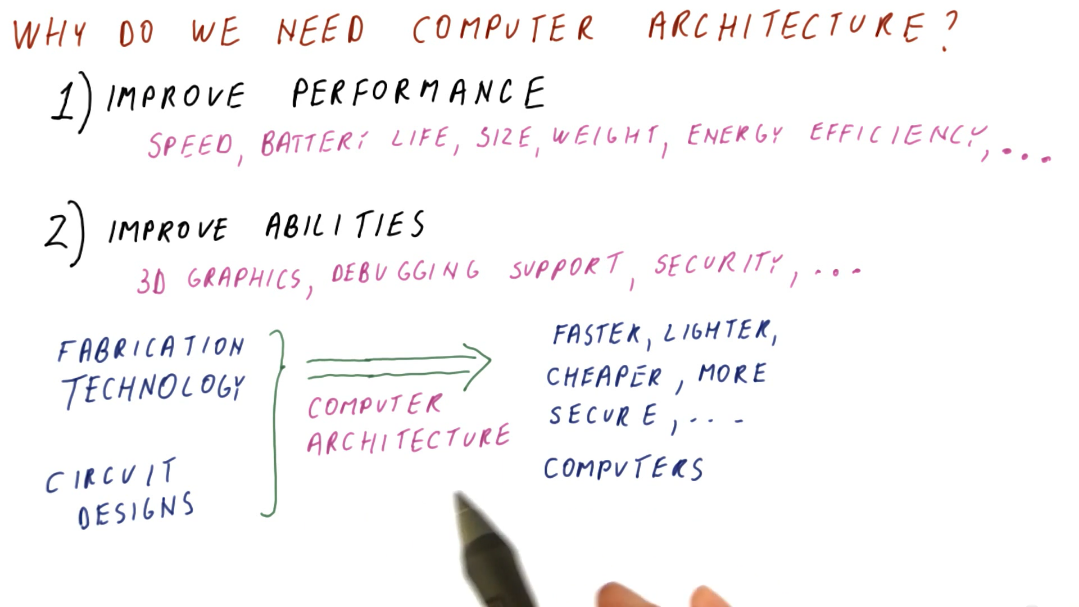 WHY DO WE NEED COMPUTER ARCHITECTURE?
1) IMPROVE PERFORMANCE
SPEED, BATTERY LIFE, SIZE, WEIGHT, ENERGY EFFICIENCY, ...
2) IMPROVE ABILITIES
3D GRAPHICS, DEBUGGING SUPPORT, SECURITY, ...
FABRICATION
TECHNOLOGY
CIRCUIT
DESIGNS
COMPUTER
ARCHITECTURE
FASTER, LIGHTER,
CHEAPER, MORE
SECURE, ...
COMPUTERS